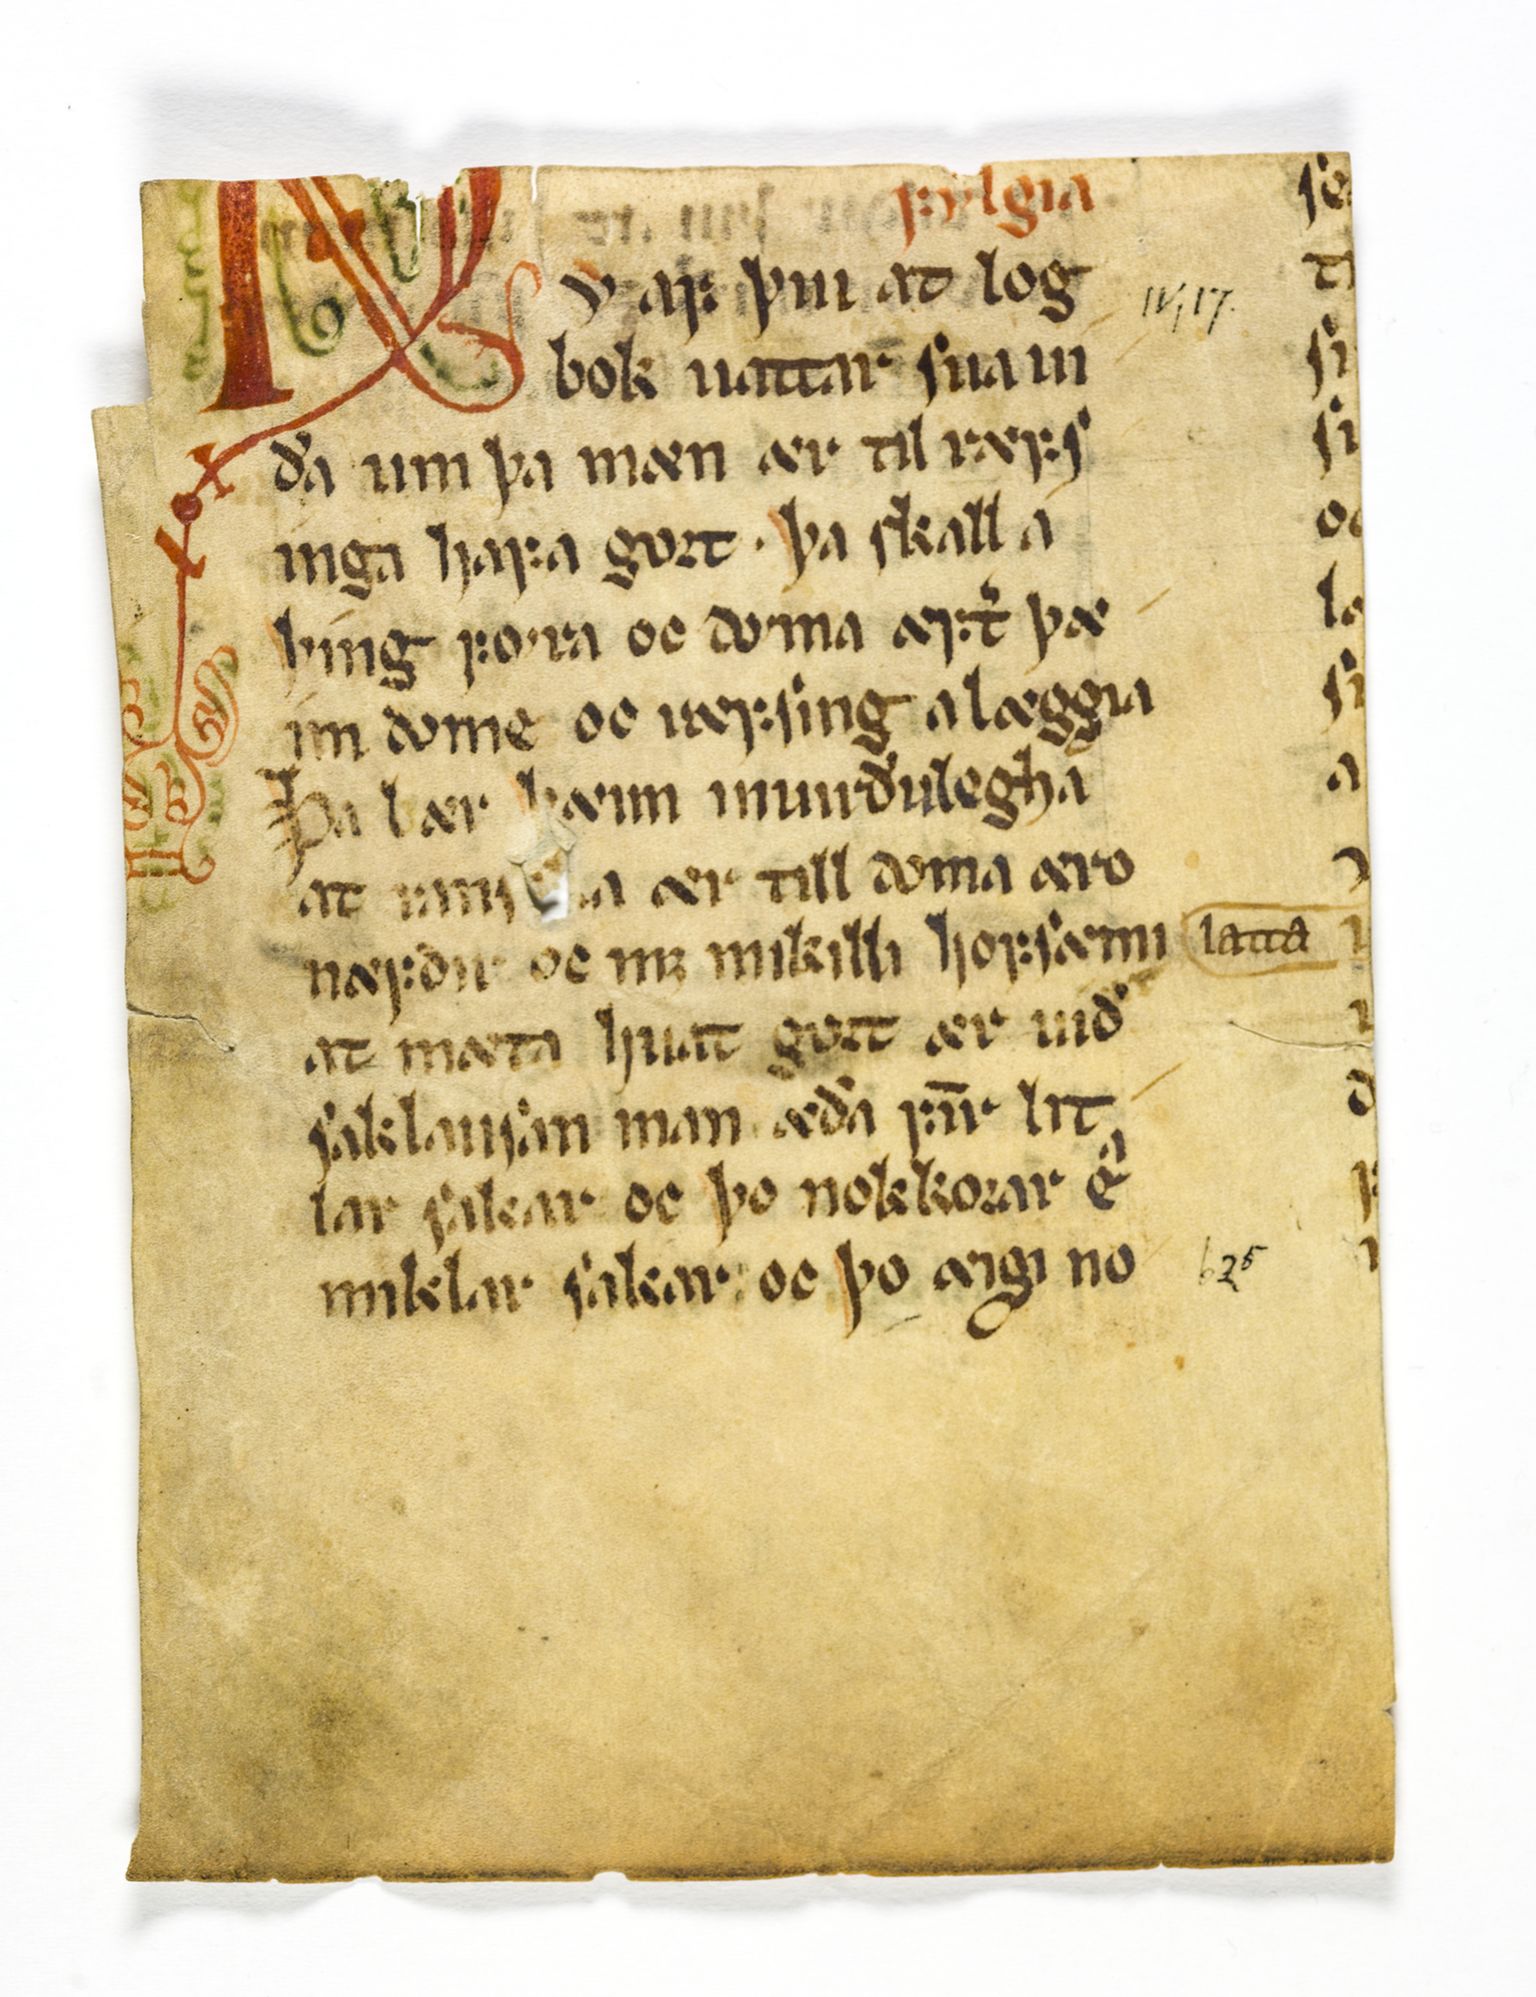 fylgia
N
v af þui at log
bok uattar sua ui
ða um þa mæn ær til ræfs
inga hafa gort · þa skall a
þing fora oc doma æft þæ
im dome oc ræfsing a læggia
Þa bær kænn inuirðulegha
at æer till doma æro
næfdir oc mz mikilli hofsæmi
latta
at mæta huat gort ær uið
saklausan man æða firir lit
lar sakar oc þo nokkorar e
miklar sakar oc þo æigi no
IV,17.
b25